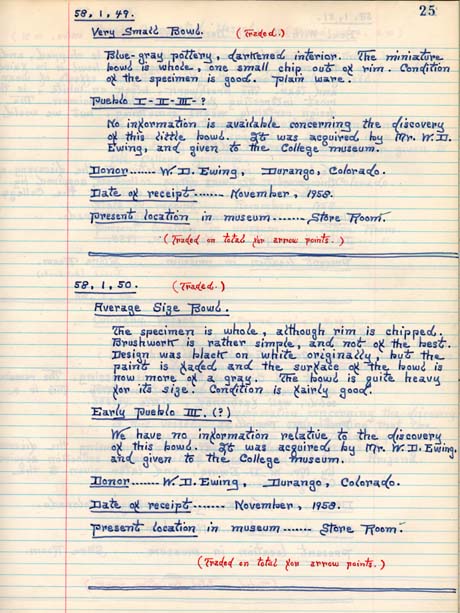 25
58, 1, 49.
Very Small Bowl. (Traded.)
Blue-gray pottery, darkened interior. The miniature
bowl is whole, one small chip out of rim. Condition
of the specimen is good. Plain ware.
Pueblo I-II-III-?
No information is available concerning the discovery
of this little bowl. It was acquired by Mr. W. D.
Ewing, and given to the College museum.
Donor...... W. D. Ewing, Durango, Colorado.
Date of receipt....... November, 1958.
Present location in museum....... Store Room.
(Traded on total for arrow points.)
58, 1, 50. (Traded.)
Average Size Bowl.
The specimen is whole, although rim is chipped.
Brushwork is rather simple, and not of the best.
Design was black on white originally, but the
paint is faded and the surface of the bowl is
now more of a gray. The bowl is quite heavy
for its size. Condition is fairly good.
Early Pueblo III. (?)
We have no information relative to the discovery
of this bowl. It was acquired by Mr. W. D. Ewing,
and given to the College museum.
Donor...... W. D. Ewing, Durango, Colorado.
Date of receipt....... November, 1958.
Present location in museum...... Store Room.
(Traded on total for arrow points.)